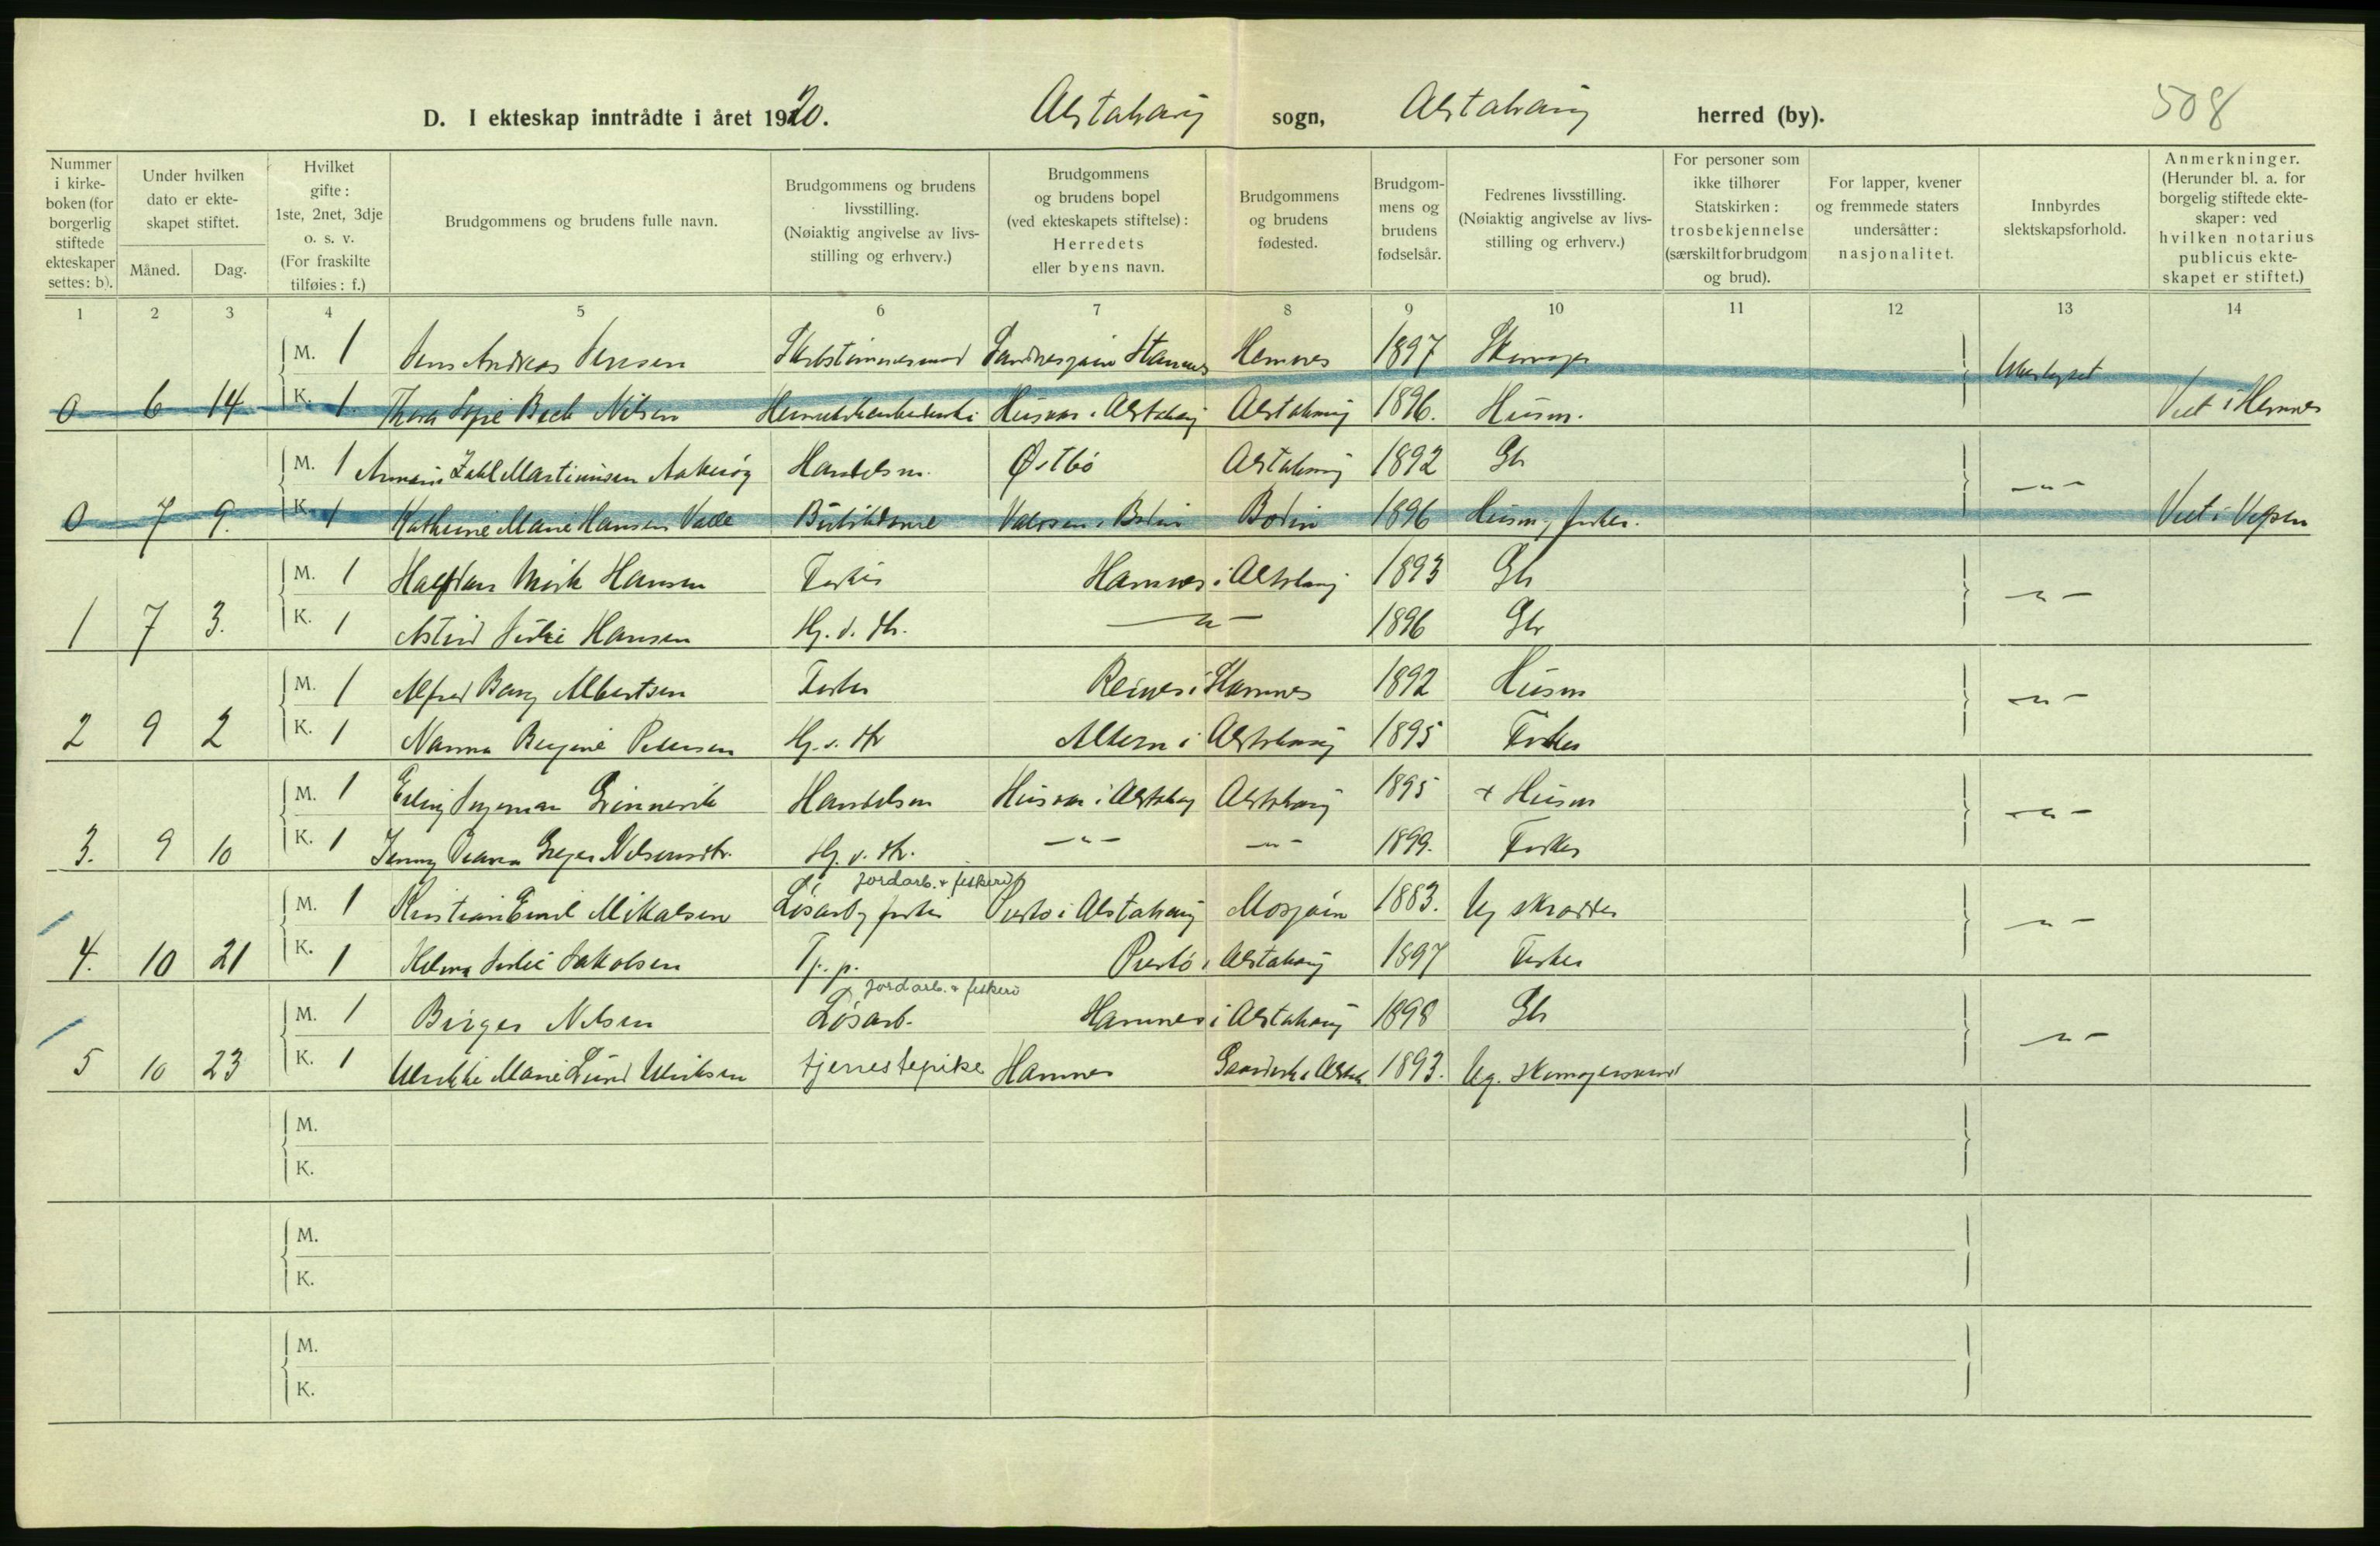 D. I ekteskap inntrådte i året 1920. Alstahaug sogn, Alstahaug herred (by). 508
Nummer i kirke-boken (for borgerlig stiftede ekteskaper settes: b).
Under hvilken dato er ekte-skapet stiftet.
Måned. Dag.
Hvilket gifte: 1ste, 2net, 3dje o. s. v. (For fraskilte tilføies: f.)
Brudgommens og brudens fulle navn.
Brudgommens og brudens livsstilling. (Nøiaktig angivelse av livs-stilling og erhverv.)
Brudgommens og brudens bopel (ved ekteskapets stiftelse): Herredets eller byens navn.
Brudgommens og brudens fødested.
Brudgom-mens og brudens fødselsår.
Fedrenes livsstilling. (Nøiaktig angivelse av livs-stilling og erhverv.)
For personer som ikke tilhører Statskirken: trosbekjennelse (særskilt for brudgom og brud).
For lapper, kvener og fremmede staters undersåtter: nasjonalitet.
Innbyrdes slektskapsforhold.
Anmerkninger. (Herunder bl. a. for borgelig stiftede ekte-skaper: ved hvilken notarius publicus ekte-skapet er stiftet.)
1 2 3 4 5 6 7 8 9 10 11 12 13 14
M. 1 Jens Andreas Jensen Sandnesjøen Stamnes Hemnes 1897 Skomager Ubeslegtet
0 6 14 K. 1 Thora Sofie Bech Nilsen Husvær i Alstahaug Alstahaug 1896. Husm. Viet i Hemnes
M. 1 Zahl Martinusen Aakerøy Handelsm. Østbö Alstahaug 1892 Gbr -"-
0 7 9. K. 1 Kathrine Marie Hansen Valle Butikdame Valosen i Bodin Bodin 1896 Husm, fisker. Viet i Vefsen
M. 1 Halfdan Mörk Hansen Fisker Hamnes i Alstahaug 1893 Gbr -"-
1 7 3. K. 1 Astrid Julie Hansen Hj. v. str. -"- 1896 Gbr
M. 1 Alfred Bang Albertsen Fisker Reines i Stamnes 1892 Husm -"-
2 9 2 K. 1 Nanna Bergine Pedersen Hj. v. str Altern i Alstahaug 1895 Fisker
M. 1 Erling Ingeman Grönnevik Handelsm Husvær i Alstahaug Alstahaug 1895 + Husm -"-
3. 9 10 K. 1 Jenny Nilsensdtr. Hj. v. str. -"- -"- 1899. Fisker
jordarb. + fiskeri
M. 1 Kristian Emil Mikalsen Lösarb, fisker Prestö i Alstahaug Mosjøen 1883. Ug skrædder -"-
4. 10 21 K. 1 Helma Julie Jakobsen Tj. p. Prestö i Alstahaug 1897 Fisker
jordarb. + fiskeri
M. 1 Birger Nilsen Lösarb. Hamnes i Alstahaug 1898 Gbr -"-
5 10 23 K. 1 Ulrikke Marie Lund Ulriksen tjenestepike Hamnes 1893. Ug. skomagersvend
M.
K.
M.
K.
M.
K.